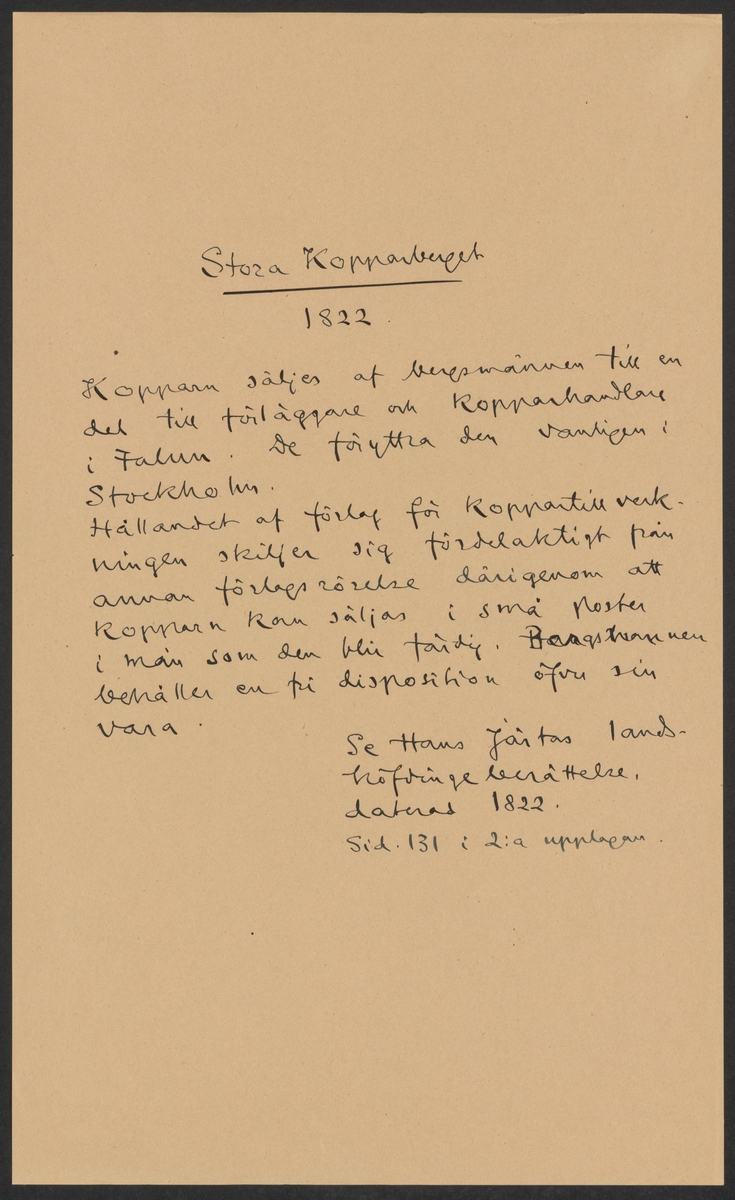 Stora Kopparberget
1822.
Kopparn säljes af bergsmännen till en
del till förläggare och kopparhandlare
i Falun. De föryttra den vanligen i
Stockholm.
Hållandet af förlag för koppartillverk-
ningen skiljer sig fördelaktigt från
annan förlagsrörelse därigenom att
kopparn kan säljas i små poster
i mån som den blir färdig. Bergsmannen
behåller en fri disposition öfver sin
vara.
Se Hans Järtas lands-
höfdingeberättelse,
daterad 1822.
Sid. 131 i 2:a upplagan.